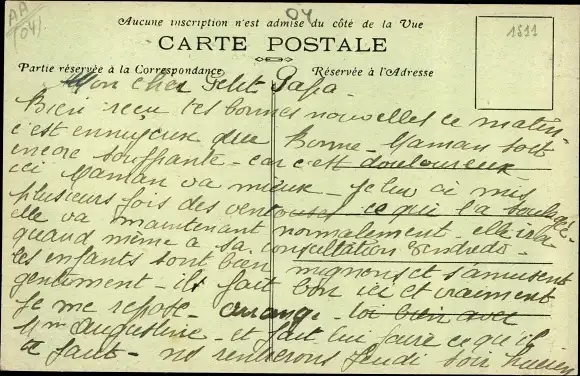 AA
(04)
04
Aucune inscription n'est admise du côté de la Vue
CARTE POSTALE
1511
Partie réservée à la Correspondance
Réservée à l'Adresse
Mon cher Petit Papa -
Bien reçu tes bonnes nouvelles ce matin -
c'est ennuyeux que Bonne-Maman soit
encore souffrante - car c'est douloureux
ici Maman va mieux - je lui ai mis
plusieurs fois des ventouses ce qui l'a soulagée -
elle va maintenant normalement - elle ira
quand même à sa consultation vendredi -
les enfants sont bien mignons et s'amusent
gentiment - il fait bon ici et vraiment
je me repose - arrange-toi bien avec
Mme Augustine - et fait lui faire ce qu'il
te faut - ns rentrerons jeudi soir